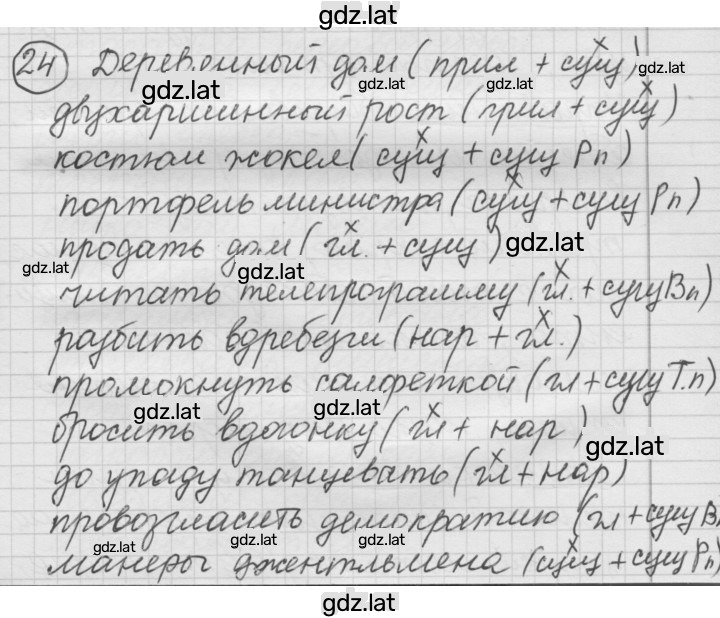 gdz.lat
24 Деревянный дом (прил + сущ)
gdz.lat
gdz.lat
двухаршинный рост (прил + сущ)
gdz.lat
костюм жокея (сущ + сущ Рп)
портфель министра (сущ + сущ Рп)
продать дом (гл. + сущ)
gdz.lat
gdz.lat
gdz.lat
читать телепрограмму (гл. + сущ Вп)
разбить вдребезги (нар + гл.)
промокнуть салфеткой (гл + сущ Т.п)
gdz.lat
gdz.lat
бросить вдогонку (гл + нар)
gdz.lat
до упаду танцевать (гл + нар)
провозгласить демократию (гл + сущ В
gdz.lat
gdz.lat
gdz.lat
манеры джентльмена (сущ + сущ Рп)
gdz.lat